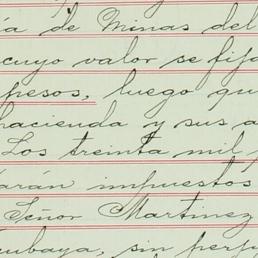 ía de Minas del
cuyo valor se fija
pesos, luego qu
hacienda y sus a
Los treinta mil
arán impuestos
Señor Martinez
cubaya, sin perju